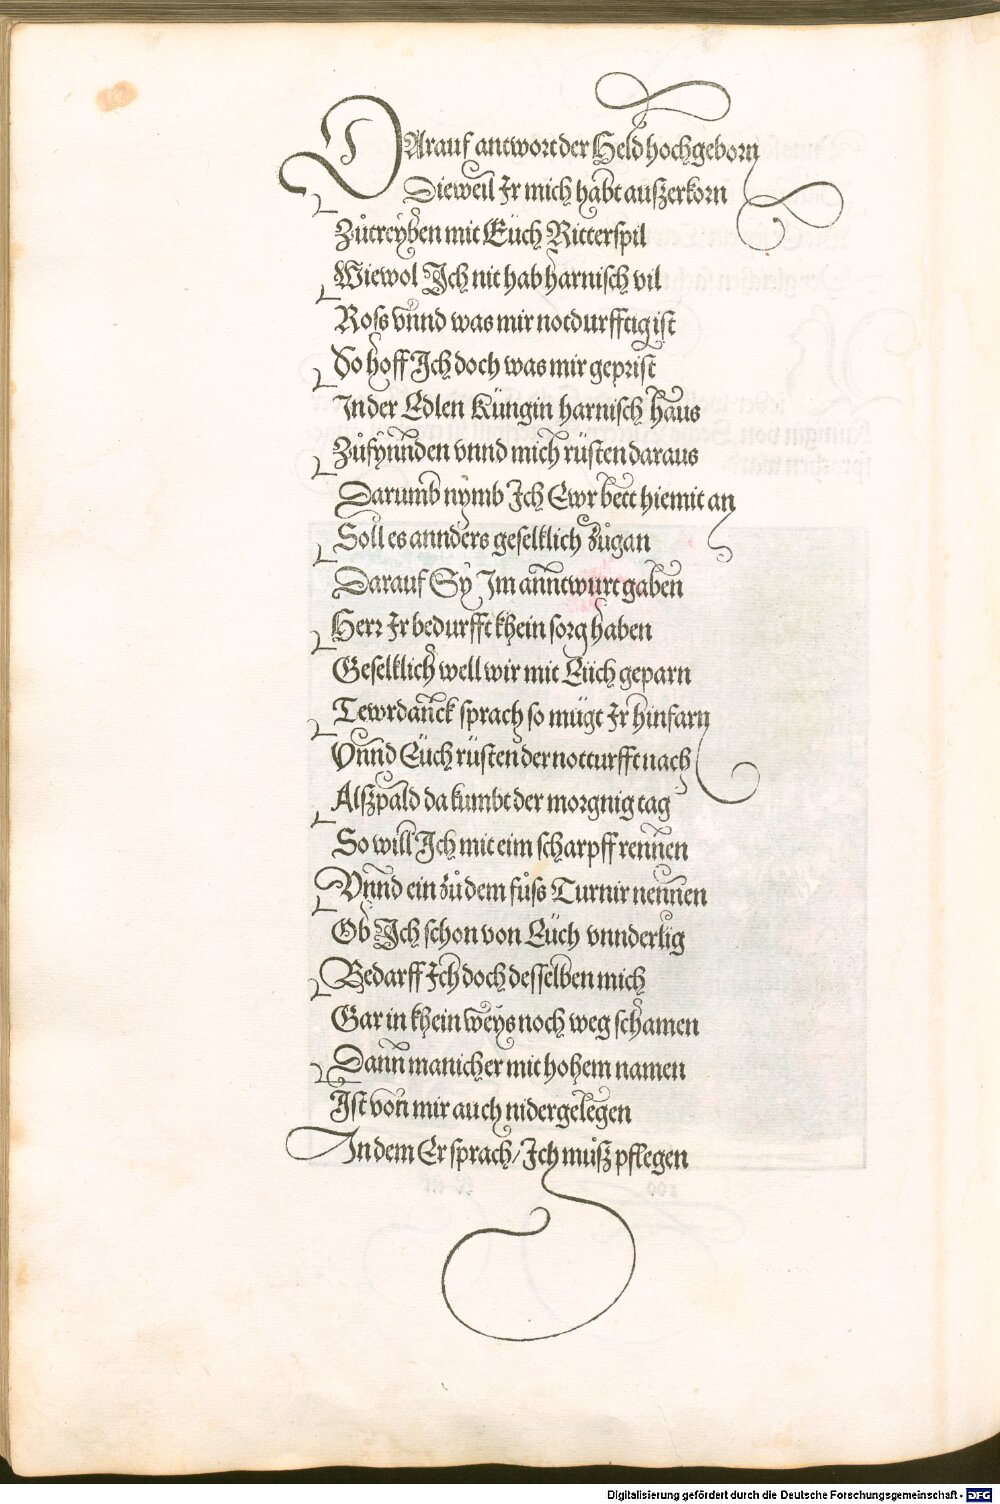 DArauf antwort der Held hochgeborn
Dieweil Ir mich habt auszerkorn
Zůtreyben mit Eüch Ritterspil
Wiewol Ich nit hab harnisch vil
Ross vnnd was mir notdurfftig ist
So hoff Ich doch was mir geprist
In der Edlen Küngin harnisch haus
Zůfynnden vnnd mich rüsten daraus
Darumb nymb Ich Ewr bett hiemit an
Soll es annders geselklich zůgan
Darauf Sy Im anntwurt gaben
Herr Ir bedurfft khein sorg haben
Geselklich well wir mit Eüch geparn
Tewrdannck sprach so mügt Ir hinfarn
Vnnd Eüch rüsten der notturfft nach
Alszpald da kumbt der morgnig tag
So will Ich mit eim scharpff rennen
Vnnd ein zů dem fůss Turnir nennen
Ob Ich schon von Eüch vnnderlig
Bedarff Ich doch desselben mich
Gar in khein weys noch weg schamen
Dann manicher mit hohem namen
Ist von mir auch nidergelegen
In dem Er sprach / Ich můsz pflegen
Digitalisierung gefördert durch die Deutsche Forschungsgemeinschaft - DFG